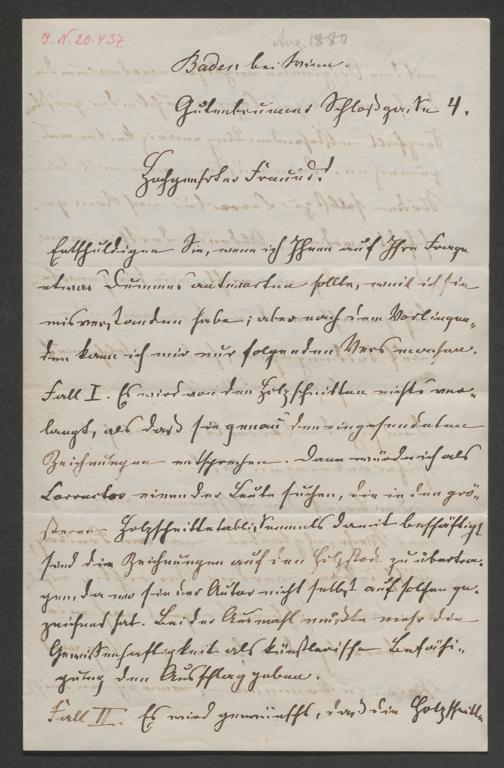 I. N. 20.437
Aug. 1880
Baden bei Wien.
Gutenbrunner Schloßgasse 4.
Hochgeehrter Freund!
Entschuldigen Sie, wenn ich Ihnen auf Ihre Frage
etwas Dummes antworten sollte, weil ich sie
misverstanden habe; aber nach dem Vorliegen-
den kann ich mir nur folgenden Vers machen.
Fall I. Es wird von den Holzschnitten nichts ver-
langt, als daß sie genau den eingesendeten
Zeichnungen entsprechen. Dann würde ich als
Corrector einen der Leute suchen, die in den grö-
ßeren Holzschnittetablissements damit beschäftigt
sind die Zeichnungen auf den Holzstock zu übertra-
gen, da wo sie der Autor nicht selbst auf solchen ge-
zeichnet hat. Bei der Auswahl müßte mehr die
Gewissenhaftigkeit als künstlerische Befähi-
gung den Ausschlag geben.
Fall II. Es wird gewünscht, daß die Holzschnitte